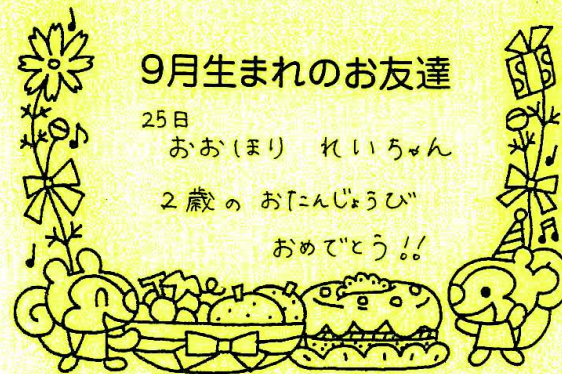 9月生まれのお友達
25日
おおほり れいちゃん
2歳の おたんじょうび
おめでとう!!